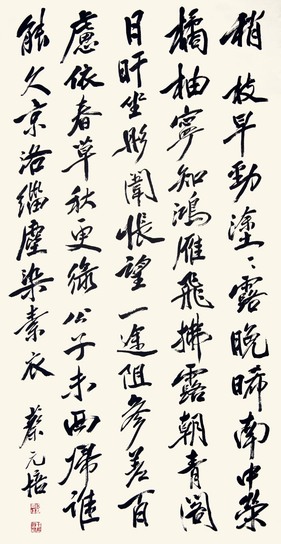 稍枝早勁塗〻露晚晞南中榮
橘柚寧知鴻雁飛拂露朝青閣
日旰坐彤闈悵望一途阻參差百
慮依春草秋更綠公子未西歸誰
能久京洛緇塵染素衣
蔡元培